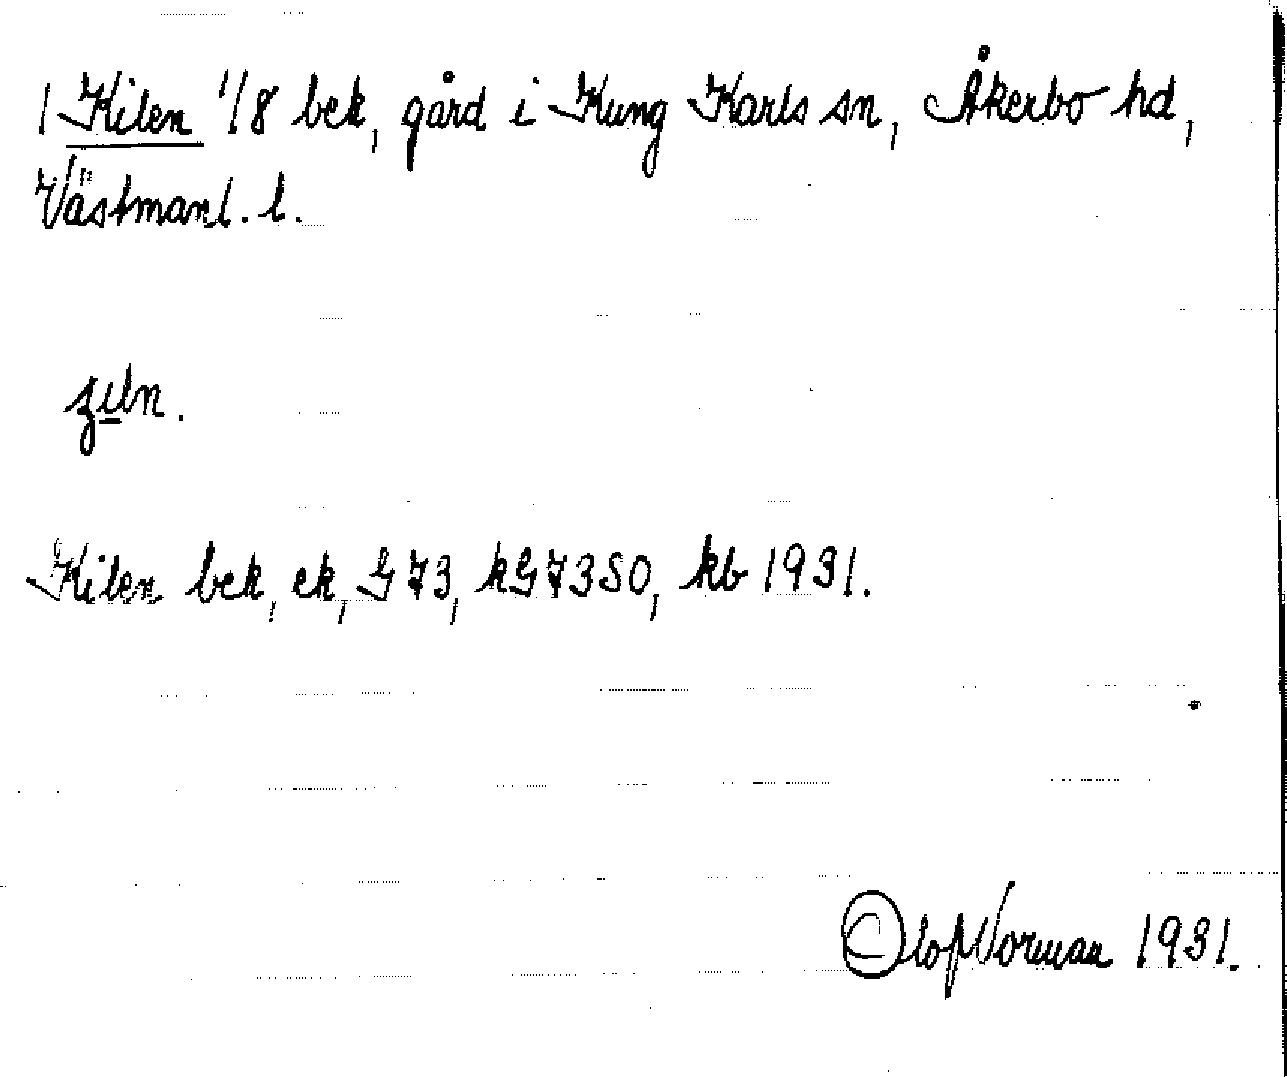 1 Kilen 1/8 bek, gård i Kung Karls sn, Åkerbo hd,
Västmanl. l.
Kilen bek, ek, G73, kG73SO, kb 1931.
Olof Norman 1931.